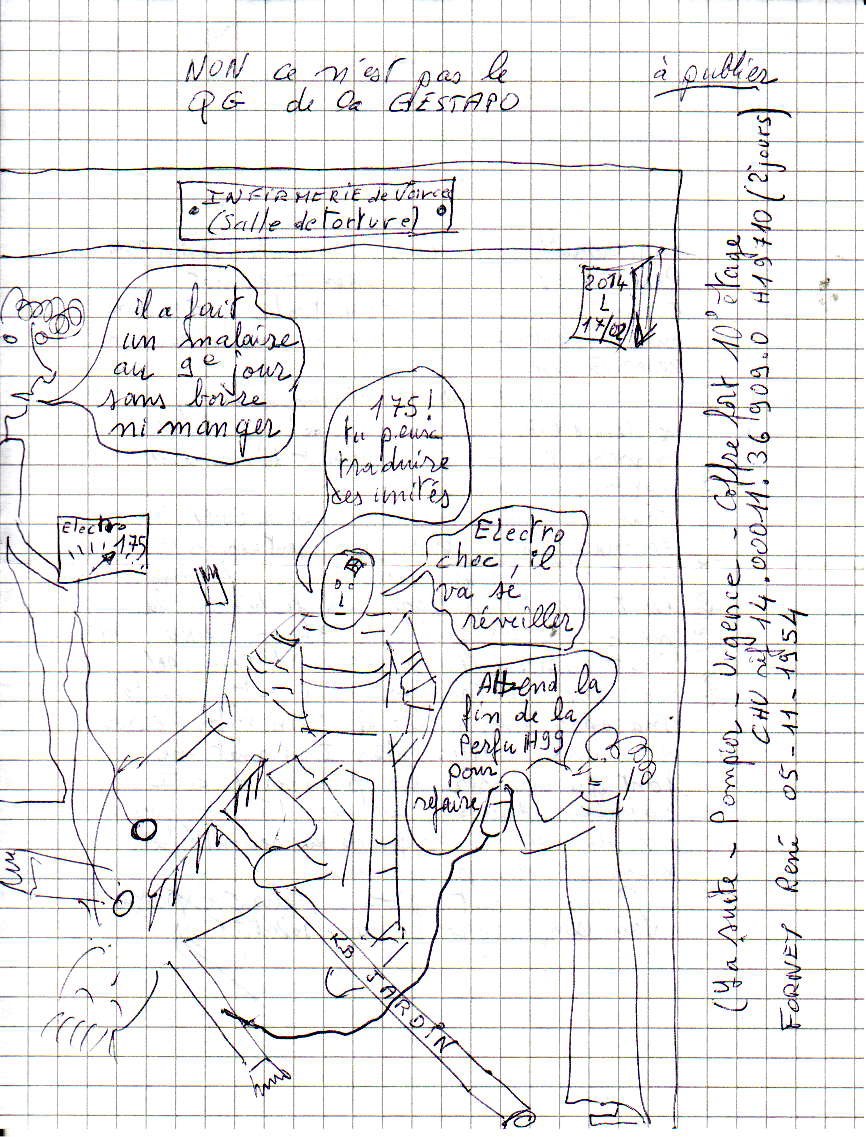 NON ce n'est pas le
QG de la GESTAPO
à publier
INFIRMERIE de Varces
(Salle de torture)
2014
L
17/02
il a fait
un malaise
au 9e jour
sans boire
ni manger
175!
tu peux
traduire
ces unités
Electro
175
Electro
choc, il
va se
réveiller
Attend la
fin de la
Perfu H99
pour
refaire
KB JARDIN
(Ya suite - Pompier - Urgence - Coffre fort 10° étage
CHU réf 14.00011.36 909.0 H19710 (2 jours)
FORNEY René 05-11-1954